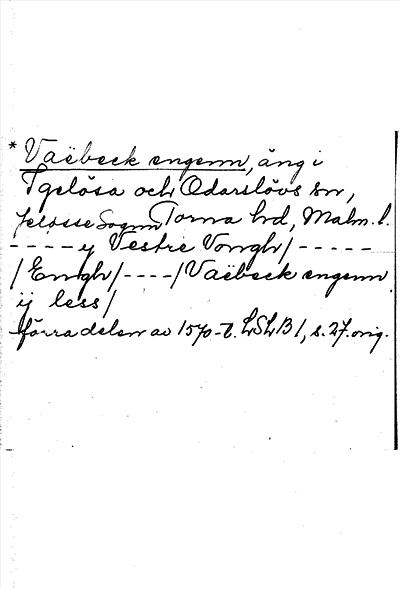 * Vaëbeck engenn, äng i
Igelösa och Odarslövs sn,
Jelösse Sognn Torna hd, Malm. l.
- - - - y Vestre Vongh/ - - - - -
/Enngh/ - - - - /Vaëbeck engenn
ij less/
förra delen av 1570-t. LSLB 1, s. 27. orig.